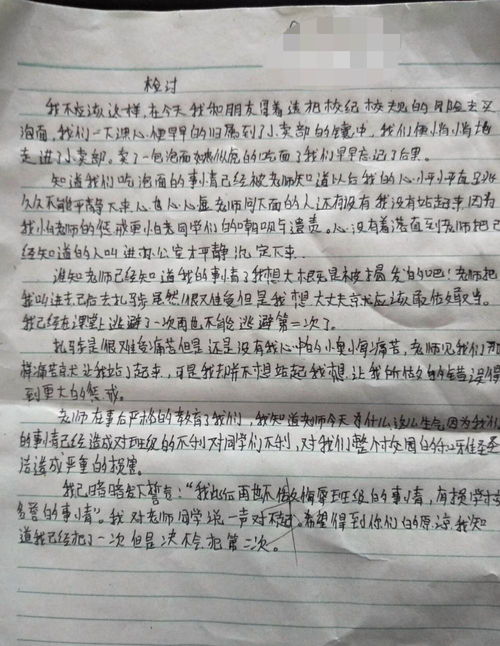 检讨
我不应该这样,在今天我和朋友冒着违犯校纪校规的风险去买
泡面,我们一下课心便早早的归属到了小卖部的 中,我们便悄悄
走进了小卖部。卖了一包泡面 的吃面了我们早早忘记了后果。
知道我们吃泡面的事情已经被老师知道以后我的心怦怦
久久不能平静下来,心 老师问下面的人还有没有我没有站起来因为
我小怕老师的惩戒更小怕老同学们的嘲叽与遣责。心没有着落直到老师把
经知道的人叫进办公室才平静沉定下来.
谁知老师已经知道我的事情了我想大概是被揭发的吧!老师把
我叫进去已后去扎马步虽然很难受但是我想大丈夫京尤应该敢做敢当。
我已经在课堂上逃避了一次再也不能逃避第二次了。
扎马步是很难受痛苦但是还是没有我心中的小里痛苦,老师见我们
痛苦京尤让我站了起来,可是我却并不想站起我想让我所做的错误得
到更大的惩戒。
老师在事后严格的教育了我们,我知道老师今天为什么这么生气因为我们
的事情已经造成对班级的不利对同学们不利,对我们整个校园的
造成严重的损害。
我已暗暗发下誓言:“我此后再也不做 侮辱班级的事情,有损学校
名誉的事情”。我对老师同学说一声对不起。希望得到你们的原谅,我知
道我已经犯了一次但是决不会犯第二次。